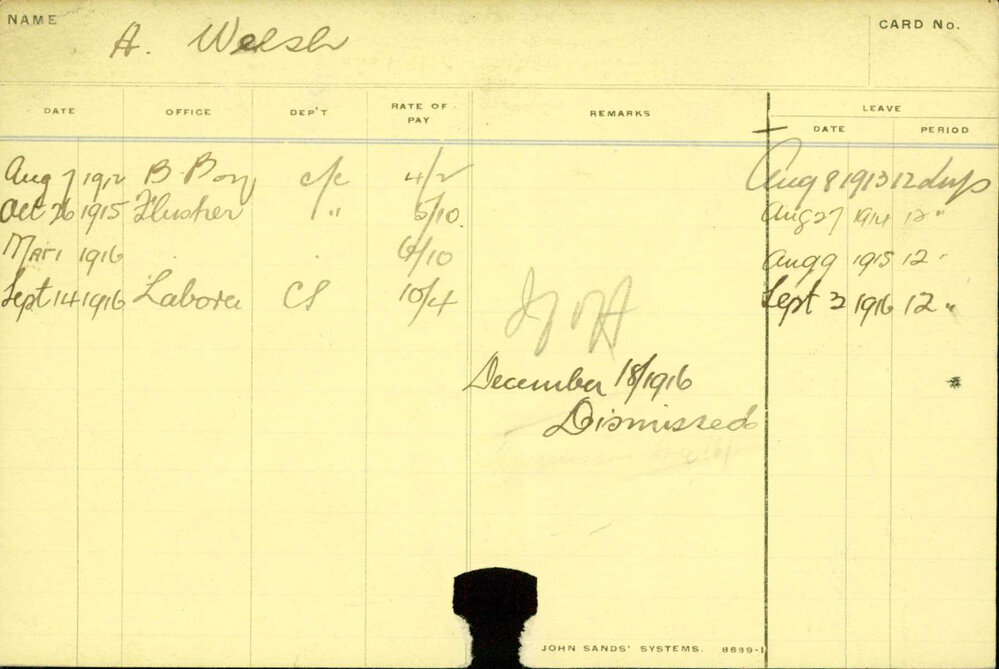 NAME A. Welsh CARD No.
DATE OFFICE DEP'T RATE OF PAY REMARKS LEAVE
DATE PERIOD
Aug 7 1912 B. Boy c/c 4/2 Aug 8 1913 12 days
Oct 26 1915 Flusher " 5/10 Aug 27 1914 12 "
Mar 1 1916 6/10 Aug 9 1915 12 "
Sept 14 1916 Laborer CS 10/4 Sept 2 1916 12 "
December 18/1916
Dismissed
JOHN SANDS' SYSTEMS. 8699-1